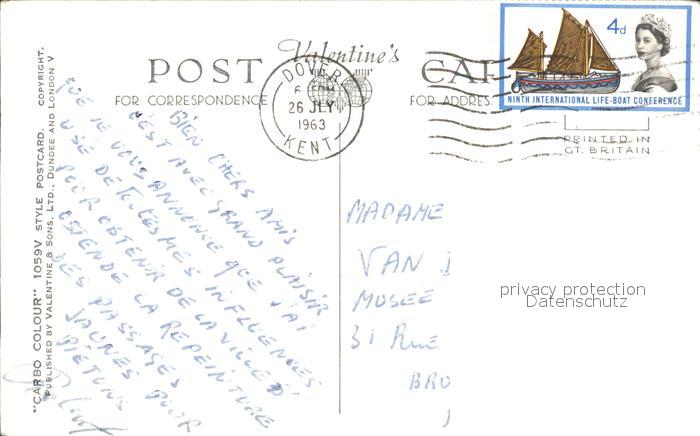 POST Valentine's CAR
FOR CORRESPONDENCE FOR ADDRES
DOVER
6
26 JLY
1963
KENT
4d
NINTH INTERNATIONAL LIFE-BOAT CONFERENCE
PRINTED IN
GT. BRITAIN
"CARBO COLOUR" 1059V STYLE POSTCARD. COPYRIGHT.
PUBLISHED BY VALENTINE & SONS, LTD., DUNDEE AND LONDON
BIEN CHERS AMIS
C'EST AVEC GRAND PLAISIR
QUE JE VOUS ANNONCE QUE J'AI
USÉ DE TOUTES MES INFLUENCES
POUR OBTENIR DE LA VILLE D'
OSTENDE LA REPEINTURE
DES PASSAGES
JAUNES POUR
PIETONS
MADAME
VAN
MUSEE
31 Rue
BRU
privacy protection
Datenschutz